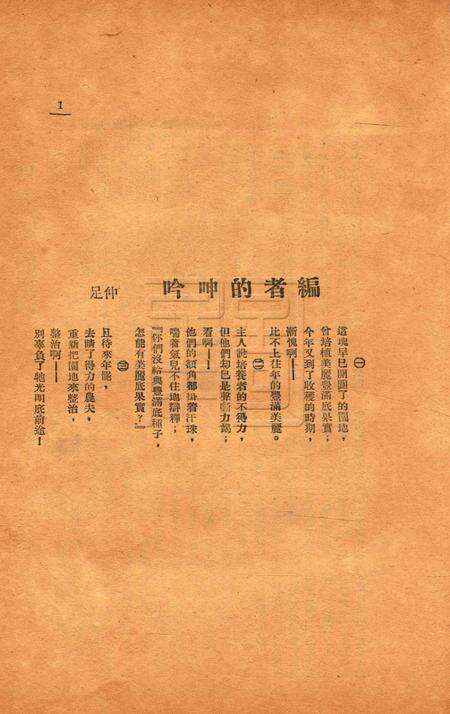 1
編者的呻吟
仲足
㊀
這塊早已開闢了的園地，
曾培植美麗豐滿底果實；
今年又到了收穫的時期，
慚愧啊——
比不上往年的豐滿美麗。
㊁
主人說培養者的不得力，
但他們却已是聲嘶力竭；
看啊——！
他們的額角都掛着汗珠，
喘着氣兒不住地辯釋；
『你們沒給與豐滿底種子，
怎能有美麗底果實？』
㊂
且待來年罷，
去請了得力的農夫，
重新把園地來整治，
整治啊——
別辜負了牠光明底前途！